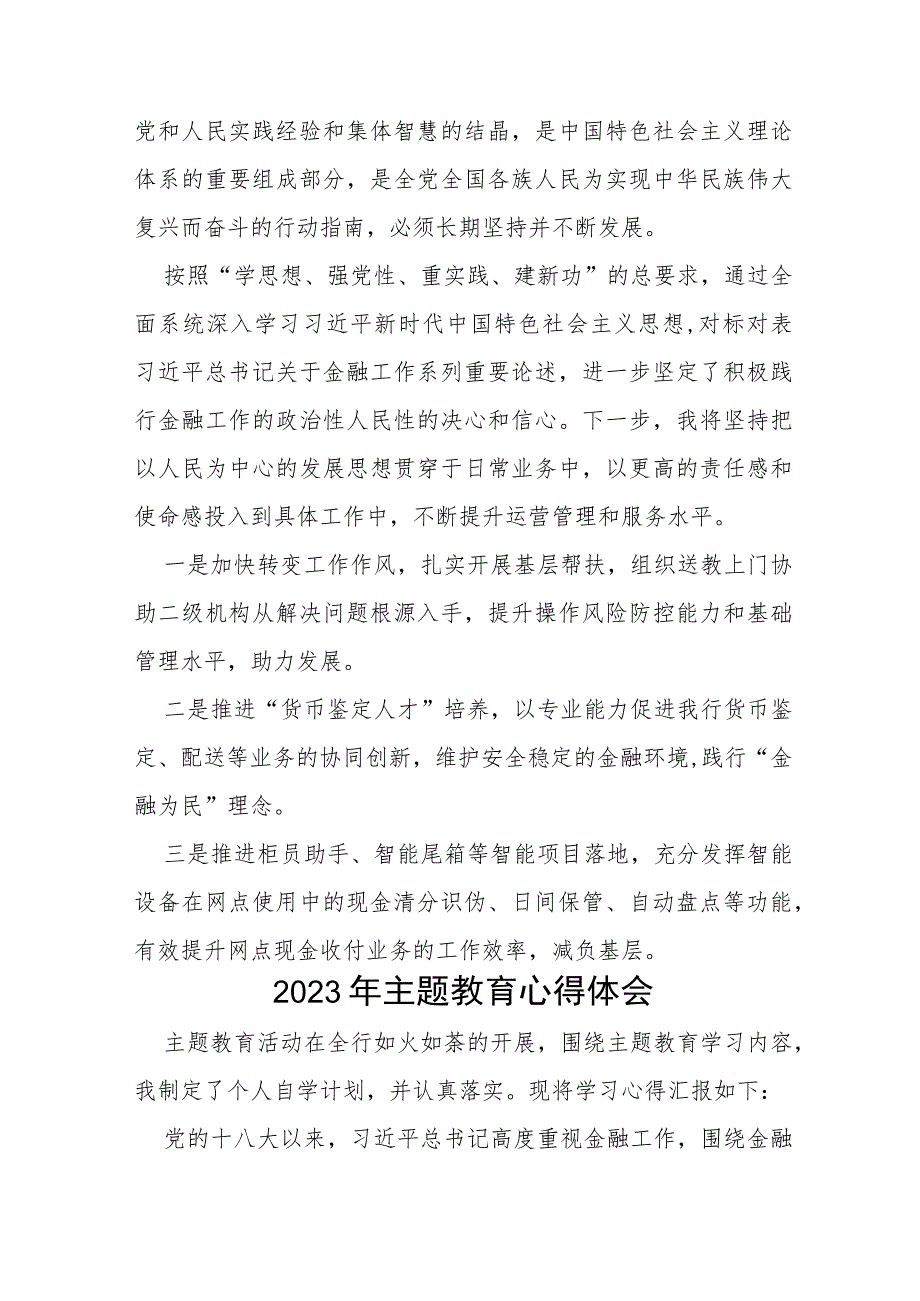 党和人民实践经验和集体智慧的结晶，是中国特色社会主义理论
体系的重要组成部分，是全党全国各族人民为实现中华民族伟大
复兴而奋斗的行动指南，必须长期坚持并不断发展。
按照“学思想、强党性、重实践、建新功”的总要求，通过全
面系统深入学习习近平新时代中国特色社会主义思想,对标对表
习近平总书记关于金融工作系列重要论述，进一步坚定了积极践
行金融工作的政治性人民性的决心和信心。下一步，我将坚持把
以人民为中心的发展思想贯穿于日常业务中，以更高的责任感和
使命感投入到具体工作中，不断提升运营管理和服务水平。
一是加快转变工作作风，扎实开展基层帮扶，组织送教上门协
助二级机构从解决问题根源入手，提升操作风险防控能力和基础
管理水平，助力发展。
二是推进“货币鉴定人才”培养，以专业能力促进我行货币鉴
定、配送等业务的协同创新，维护安全稳定的金融环境,践行“金
融为民”理念。
三是推进柜员助手、智能尾箱等智能项目落地，充分发挥智能
设备在网点使用中的现金清分识伪、日间保管、自动盘点等功能，
有效提升网点现金收付业务的工作效率，减负基层。
2023年主题教育心得体会
主题教育活动在全行如火如荼的开展，围绕主题教育学习内容，
我制定了个人自学计划，并认真落实。现将学习心得汇报如下：
党的十八大以来，习近平总书记高度重视金融工作，围绕金融